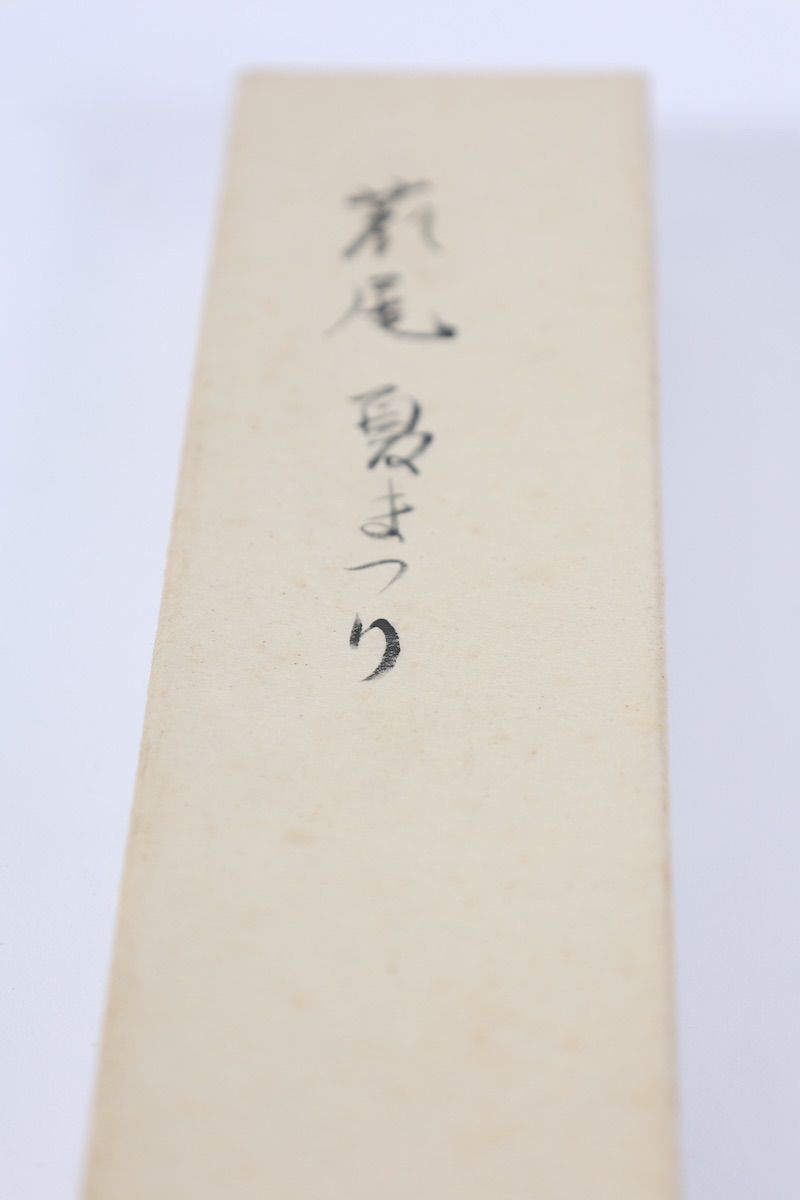 尾 夏まつり